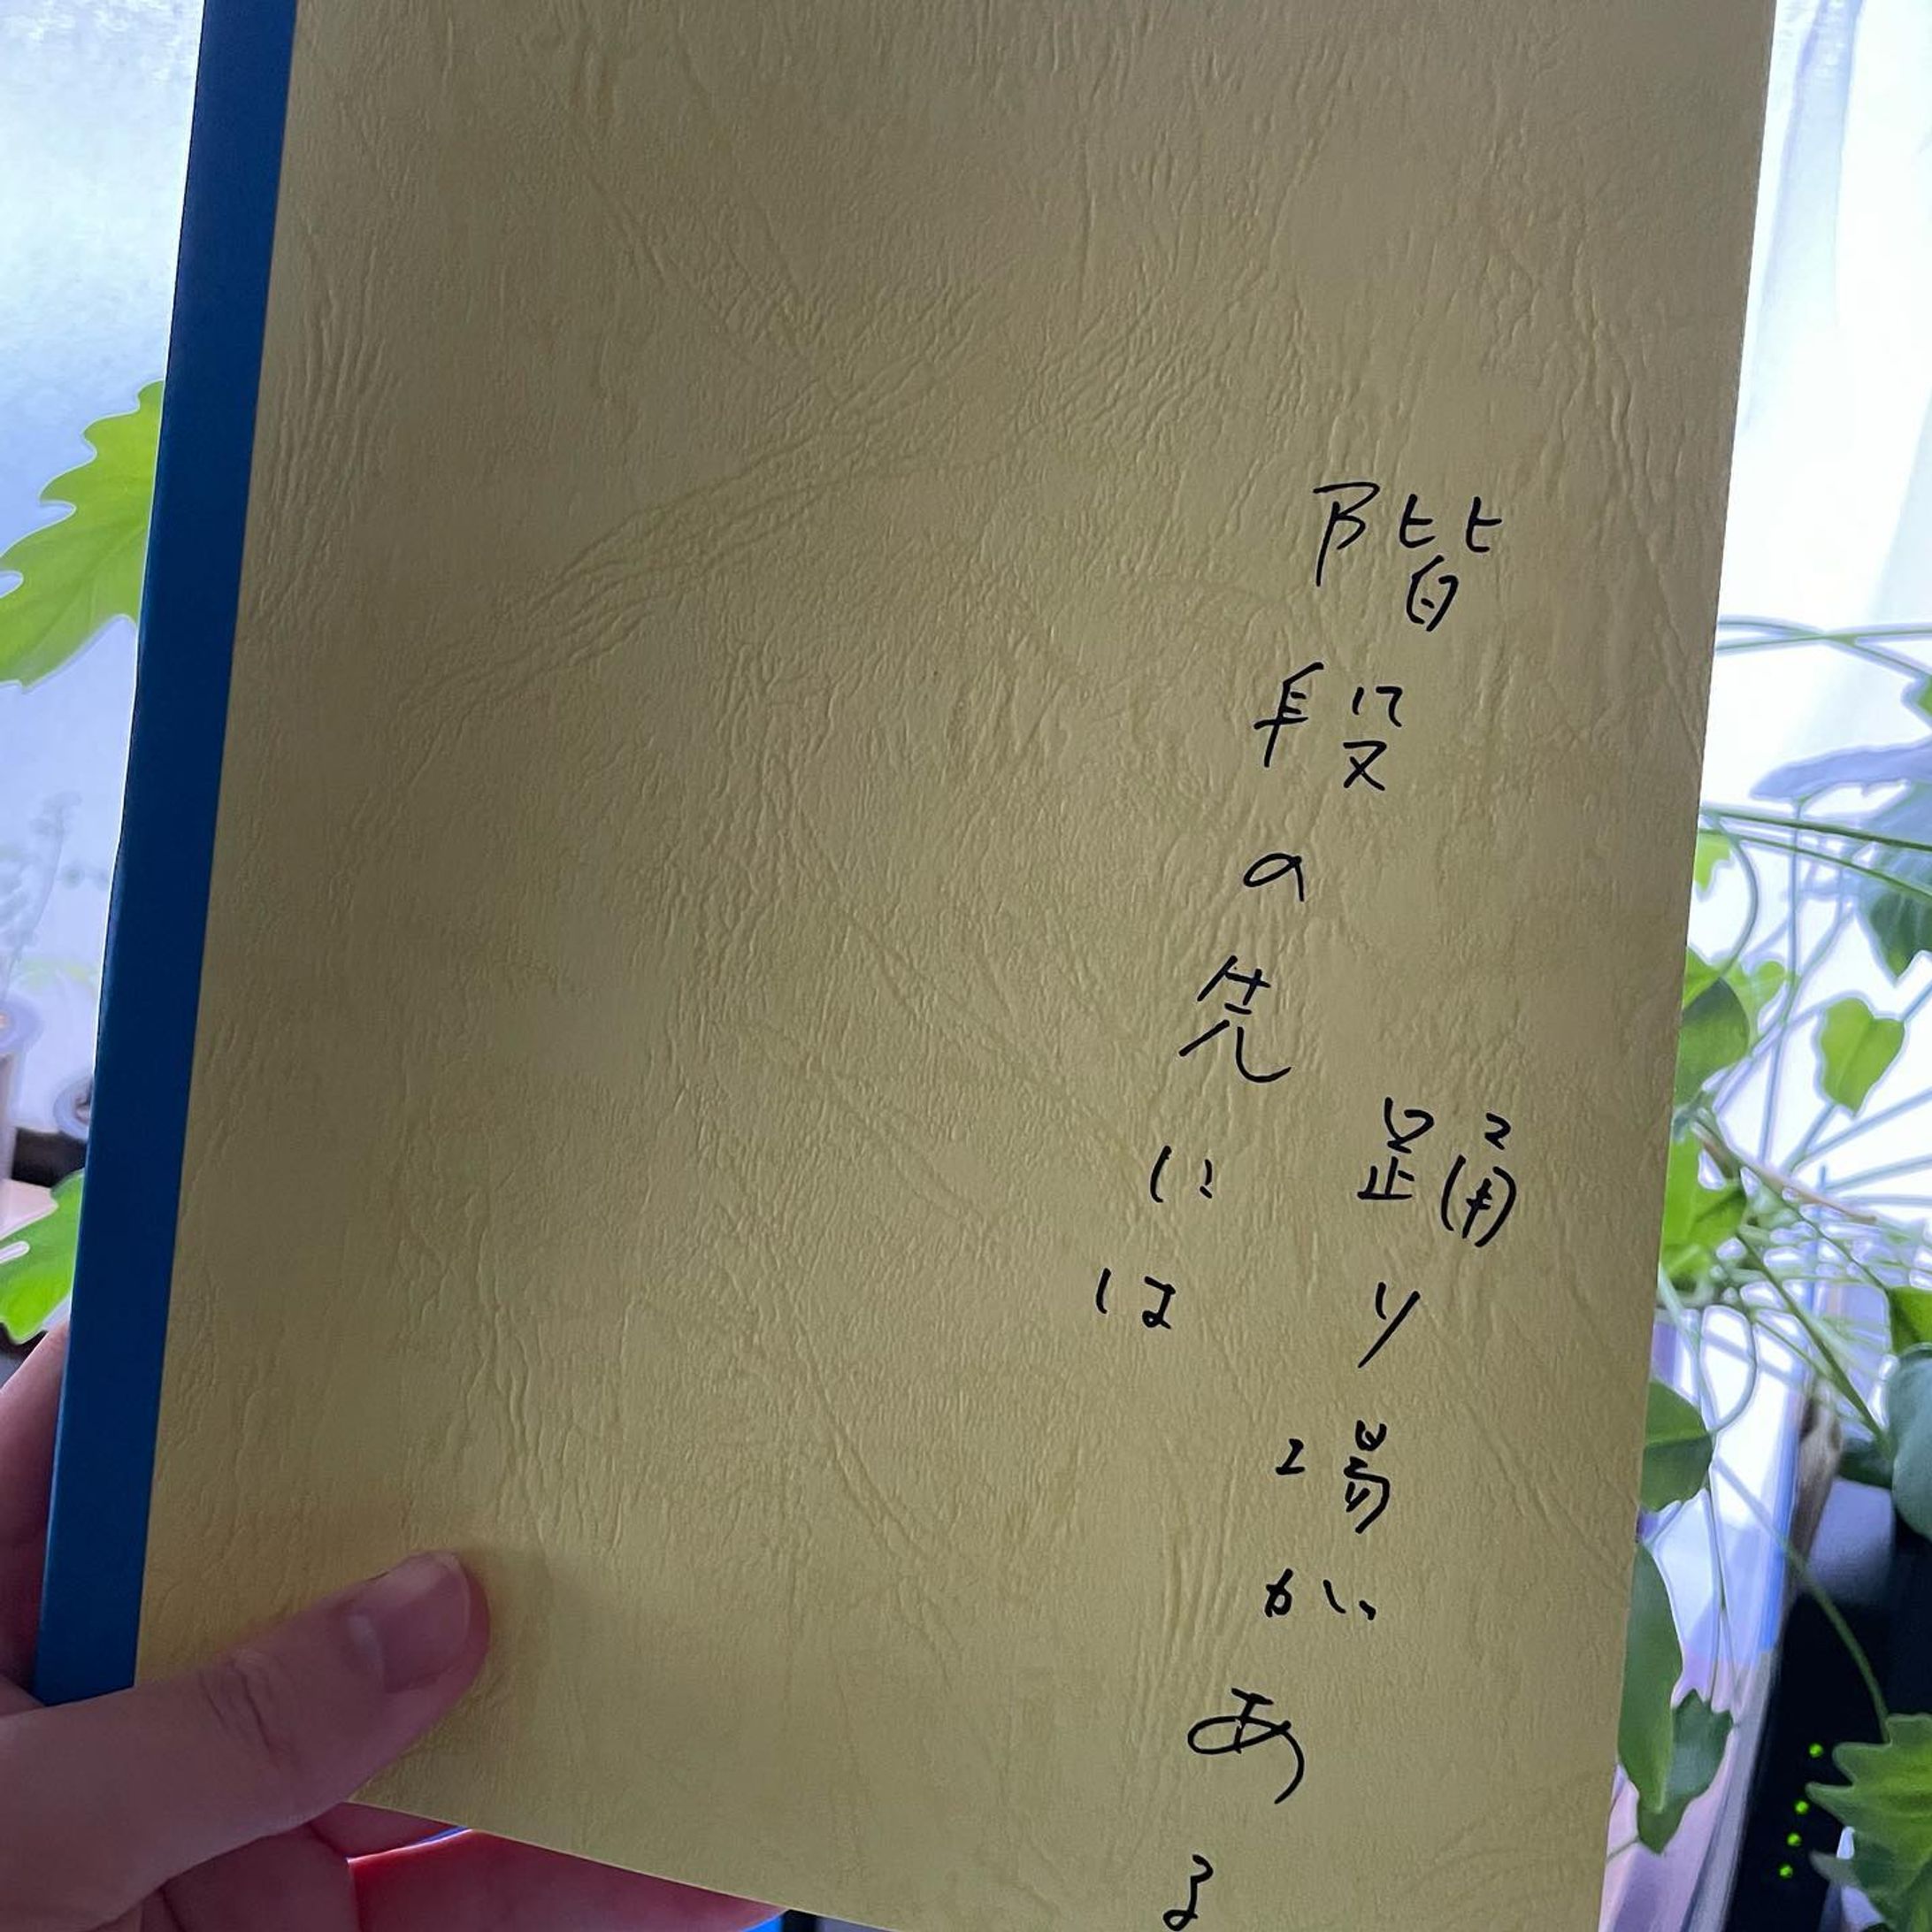 階段の先には
踊り場がある